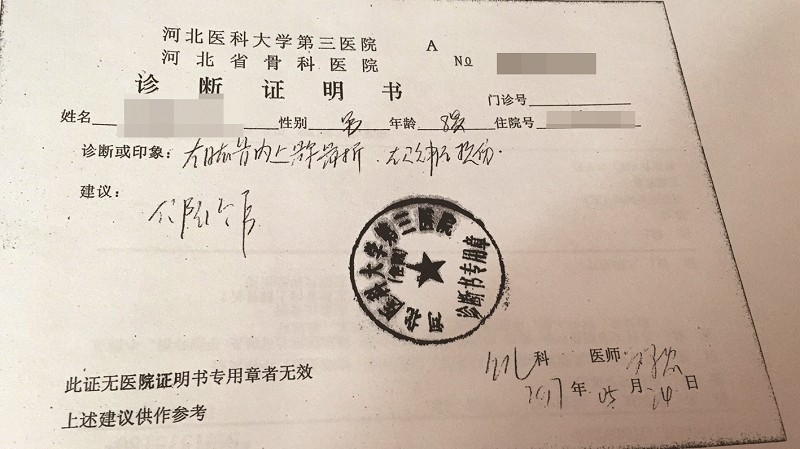 河北医科大学第三医院 A
河北省骨科医院 №
诊断证明书
门诊号
姓名 性别 男 年龄 8岁 住院号
诊断或印象：左肱骨内上髁骨折 左尺神经损伤.
建议：
住院治疗
河北医科大学第三医院
(住院)
诊断书专用章
小儿科 医师
2017年05月24日
此证无医院证明书专用章者无效
上述建议供作参考